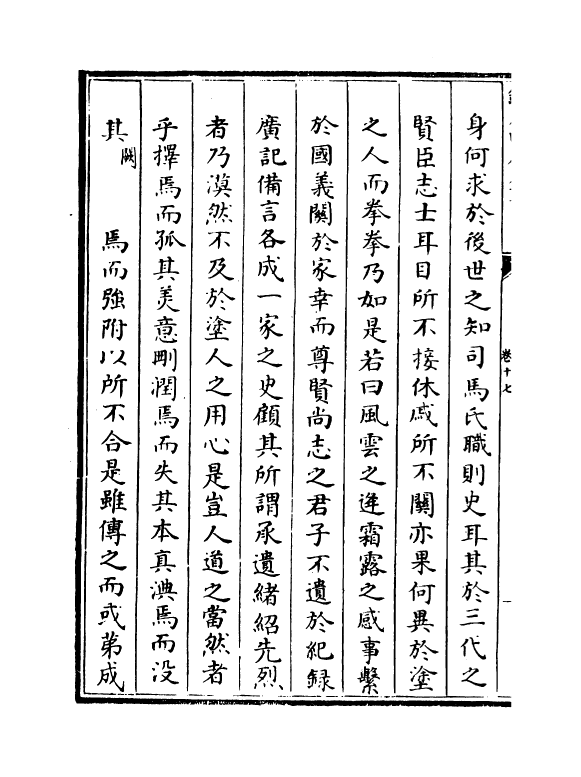 身何求於後世之知司馬氏職則史耳其於三代之
賢臣志士耳目所不接休戚所不關亦果何異於塗
之人而拳拳乃如是若曰風雲之逢霜露之感事繫
於國義關於家幸而尊賢尚志之君子不遺於紀録
廣記備言各成一家之史顧其所謂承遺緒紹先烈
者乃漠然不及於塗人之用心是豈人道之當然者
乎擇焉而孤其美意刪潤焉而失其本真淟焉而没
其闕焉而強附以所不合是雖傳之而或第成
卷十七